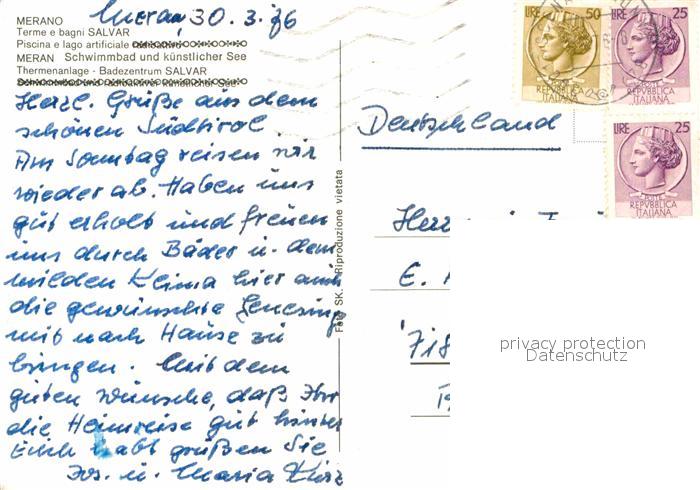 Meran, 30.3.76
MERANO
Terme e bagni SALVAR
Piscina e lago artificiale
MERAN Schwimmbad und künstlicher See
Thermenanlage - Badezentrum SALVAR
Schwimmbad und künstlicher See
Herzl. Grüße aus dem
schönen Südtirol.
Am Sonntag reisen wir
wieder ab. Haben uns
gut erholt und freuen
uns durch Bäder u. dem
milden Klima hier auch
die gewünschte Genesung
mit nach Hause zu
bringen. Mit dem
guten Wünsche, daß Ihr
die Heimreise gut hinter
Euch habt grüßen Sie
Jos. u. Maria
Foto SK. Riproduzione vietata
LIRE 50
POSTE
REPVBBLICA
ITALIANA
LIRE 25
REPVBBLICA
ITALIANA
LIRE 25
POSTE
REPVBBLICA
ITALIANA
Deutschland
E.
privacy protection
Datenschutz